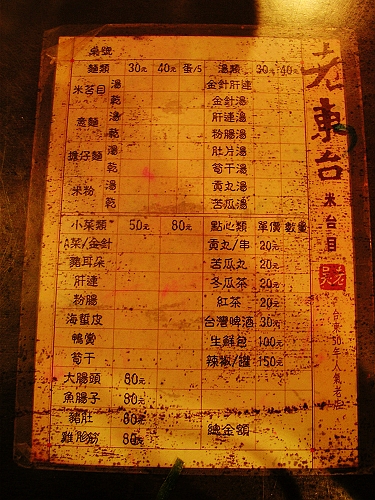 桌號
麵類 30元 40元 蛋/5 湯類 30元 40元
米苔目 湯 乾 金針肝連
金針湯
意麵 湯 乾 肝連湯
粉腸湯
擔仔麵 湯 乾 肚片湯
筍干湯
米粉 湯 乾 黃丸湯
苦瓜湯
小菜類 50元 80元 點心類 單價 數量
A菜/金針 黃丸/串 20元
豬耳朵 苦瓜丸 20元
肝連 冬瓜茶 20元
粉腸 紅茶 20元
海蜇皮 台灣啤酒 30元
鴨賞 生鮮包 100元
筍干 辣椒/罐 150元
大腸頭 80元
魚腸子 80元
豬肚 80元 總金額
雞胗筋 80元
老東台
米台目
老吳
台東50年人氣老店